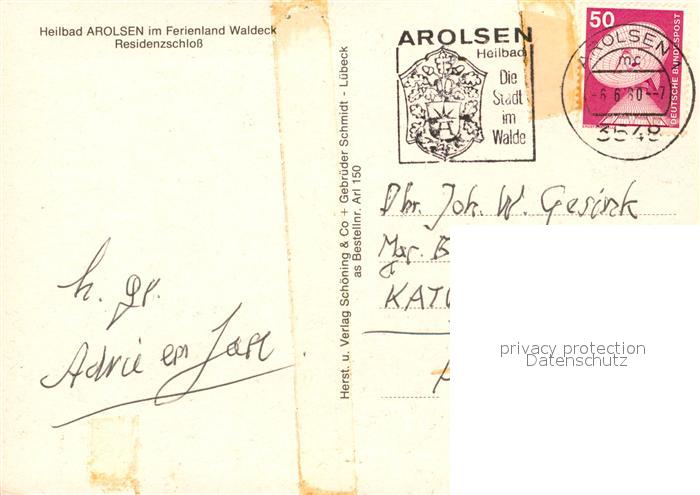 Heilbad AROLSEN im Ferienland Waldeck
Residenzschloß
Herst. u. Verlag Schöning & Co + Gebrüder Schmidt - Lübeck
as Bestellnr. Arl 150
AROLSEN
Heilbad
Die
Stadt
im
Walde
50
DEUTSCHE BUNDESPOST
AROLSEN
mc
-6.6.80--7
3548
Dhr. Joh. W. Gesink
Mgr. B
KATW
h. gr.
Adrie en Jan
privacy protection
Datenschutz